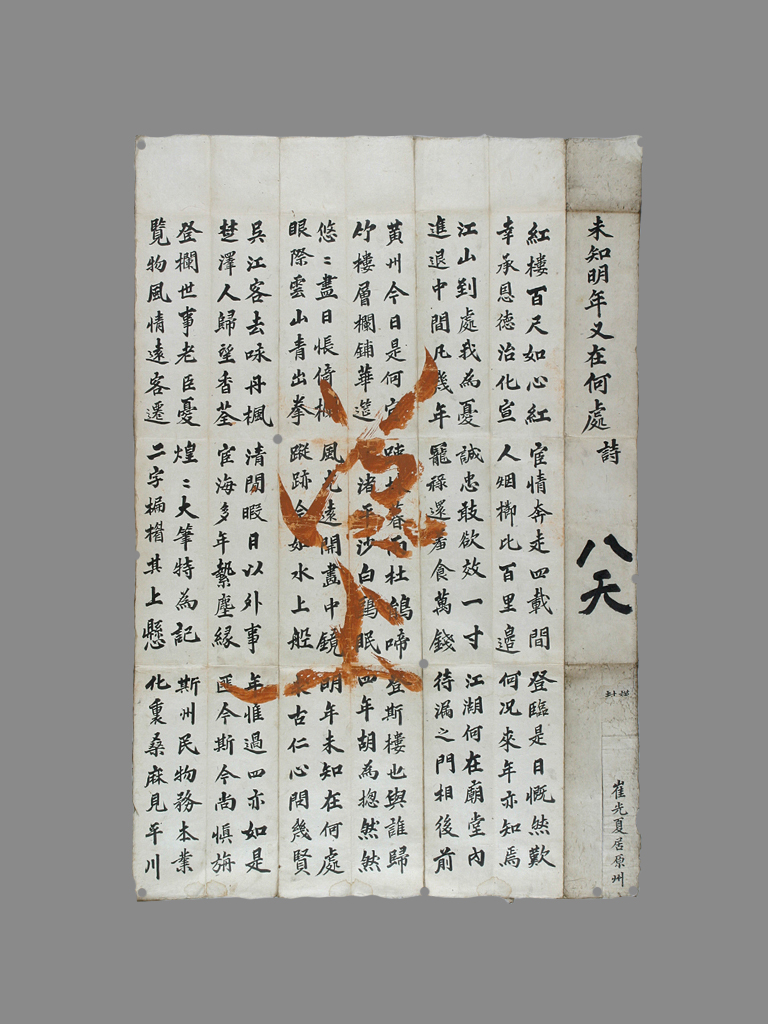 未知明年又在何處 詩
八天
崔光夏居原州
紅樓百尺如心紅 宦情奔走四載間 登臨是日慨然歎
幸承恩德治化宣 人烟櫛比百里邉 何況來年亦知焉
江山到處我為憂 誠忠敢欲效一寸 江湖何在廟堂內
進退中間凡幾年 寵祿還羞食萬錢 待漏之門相後前
黃州今日是何 暮雨杜鵑啼 登斯樓也與誰歸
竹樓層欄鋪華筵 渚平沙白鷗眠 四年胡為摠然然
悠〻盡日悵倚欄 風光遠開畫中鏡 明年未知在何處
眼際雲山青出拳 蹤跡今如水上船 古仁心問幾賢
吳江客去咏丹楓 清閒暇日以外事 年惟過四亦如是
楚澤人歸望香荃 宦海多年縶塵緣 匪今斯今尚愼旃
登欄世事老臣憂 煌〻大筆特為記 斯州民物務本業
覽物風情遠客遷 二字楄楣其上懸 化裏桑麻見平川